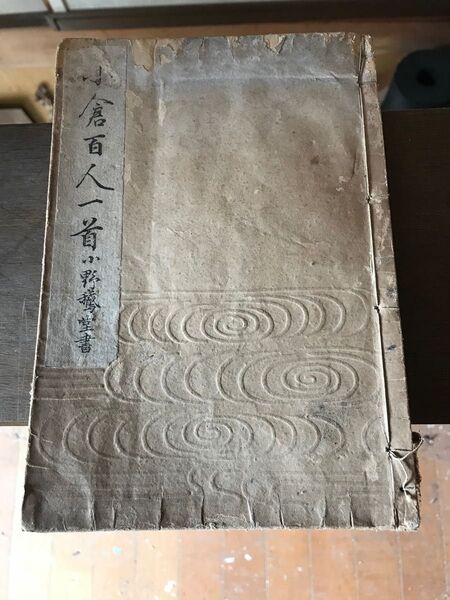 小倉百人一首小野鵞堂書